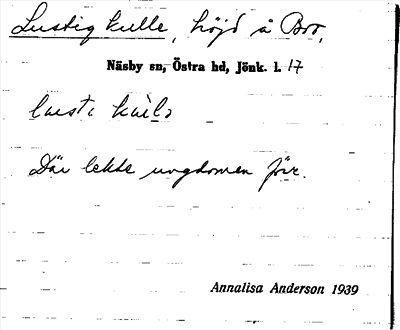 Lustig kulle, höjd å Bro,
Näsby sn, Östra hd, Jönk. l. 17
Där lekte ungdomen förr.
Annalisa Anderson 1939